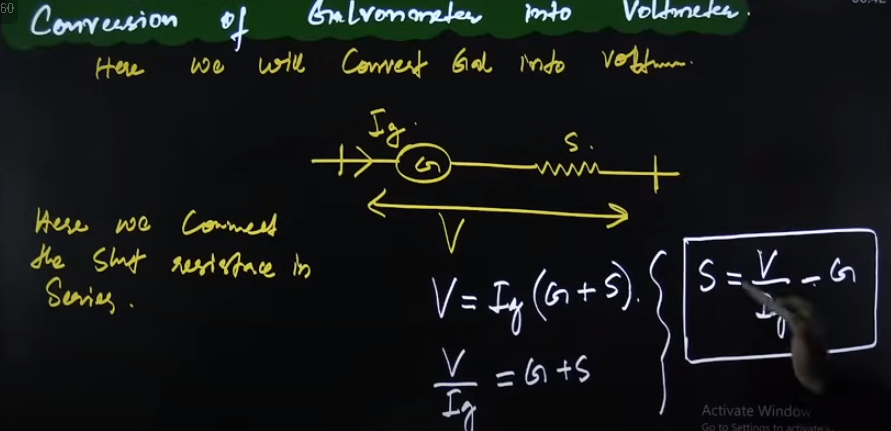 60
Conversion of Galvanometer into Voltmeter.
Here we will Convert Gal into voltmm.
Ig.
G
S.
V
Here we Connect
the Shut resistace in
Series.
V = Ig (G + S).
V/Ig = G + S
S = V/Ig - G
Activate Window
Go to Settings to activate